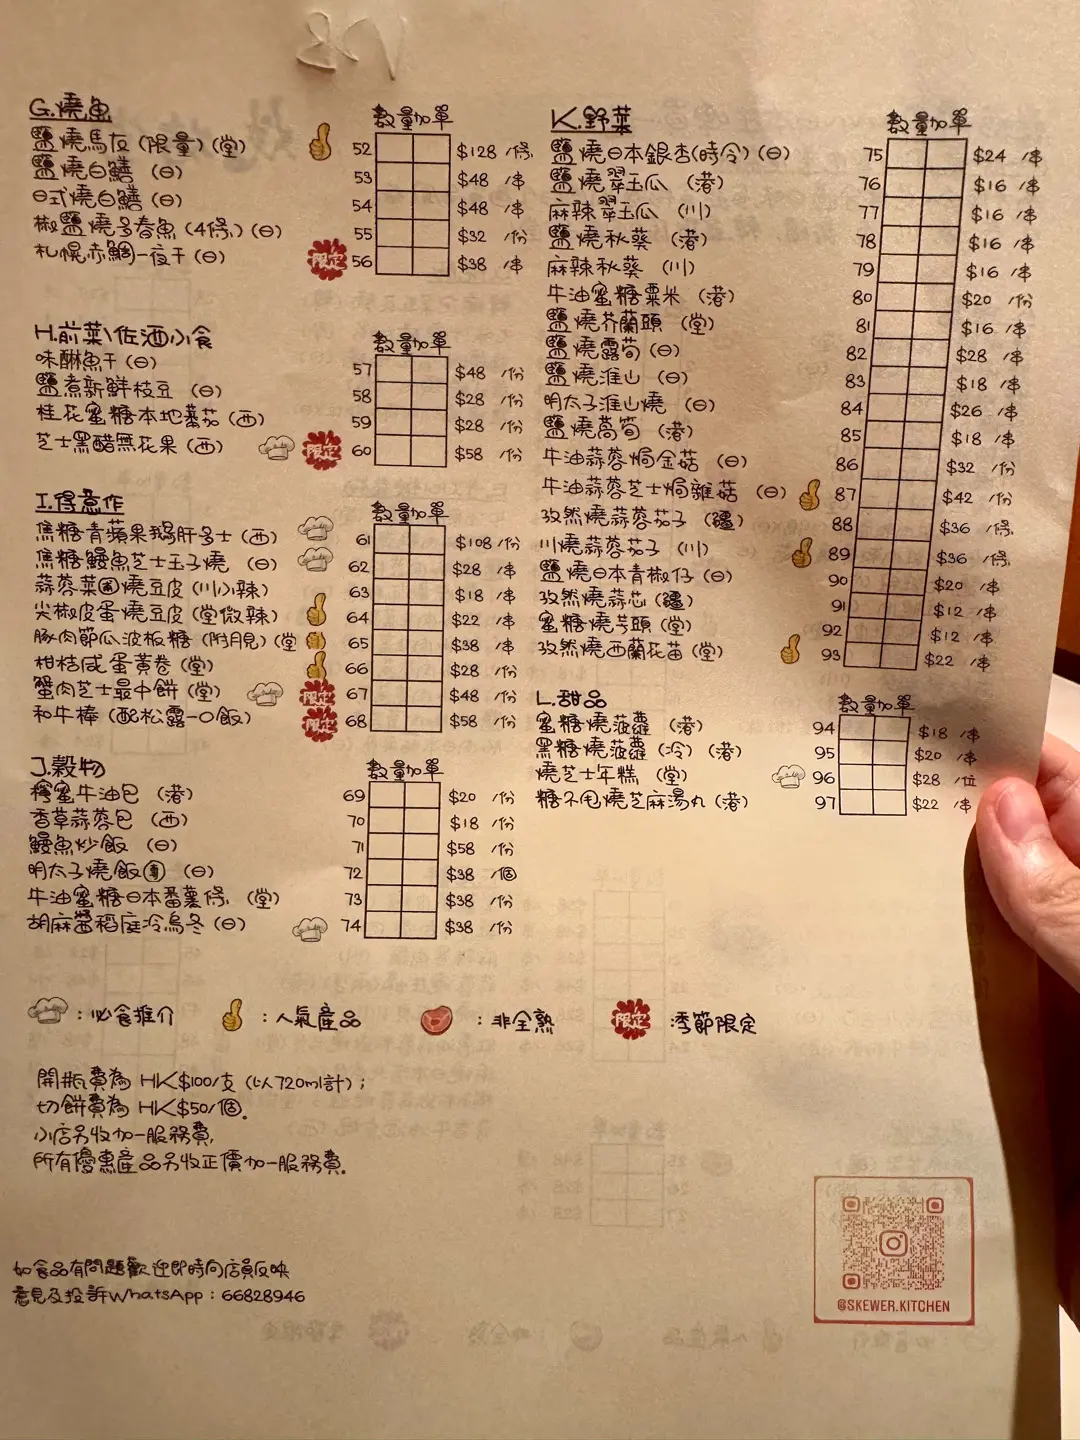 G.燒魚 數量加單
鹽燒馬友(限量)(堂) 52 $128 /條
鹽燒白鱔 (日) 53 $48 /串
日式燒白鱔(日) 54 $48 /串
椒鹽燒多春魚(4條)(日) 55 $32 /份
札幌赤鯛一夜干(日) 限定 56 $38 /串
H.前菜\佐酒小食 數量加單
味醂魚干(日) 57 $48 /份
鹽煮新鮮枝豆 (日) 58 $28 /份
桂花蜜糖本地蕃茄(西) 59 $28 /份
芝士黑醋無花果(西) 限定 60 $58 /份
I.得意作 數量加單
焦糖青蘋果鵝肝多士(西) 61 $108/份
焦糖鰻魚芝士玉子燒 (日) 62 $28 /串
蒜蓉菜圃燒豆皮(川小辣) 63 $18 /串
尖椒皮蛋燒豆皮(堂微辣) 64 $22 /串
豚肉節瓜波板糖 (附月見)(堂 65 $38 /串
柑桔咸蛋黃卷(堂) 66 $28 /份
蟹肉芝士最中餅(堂) 限定 67 $48 /份
和牛棒 (配松露一口飯) 限定 68 $58 /份
J.穀物 數量加單
檸蜜牛油包 (港) 69 $20 /份
香草蒜蓉包 (西) 70 $18 /份
鰻魚炒飯 (日) 71 $58 /份
明太子燒飯團 (日) 72 $38 /個
牛油蜜糖日本番薯條 (堂) 73 $38 /份
胡麻醬稻庭冷烏冬(日) 74 $38 /份
K.野菜 數量加單
鹽燒日本銀杏(時令)(日) 75 $24 /串
鹽燒翠玉瓜 (港) 76 $16 /串
麻辣翠玉瓜 (川) 77 $16 /串
鹽燒秋葵 (港) 78 $16 /串
麻辣秋葵 (川) 79 $16 /串
牛油蜜糖粟米 (港) 80 $20 /份
鹽燒芥蘭頭 (堂) 81 $16 /串
鹽燒露筍(日) 82 $28 /串
鹽燒淮山 (日) 83 $18 /串
明太子淮山燒 (日) 84 $26 /串
鹽燒萵筍 (港) 85 $18 /串
牛油蒜蓉焗金菇 (日) 86 $32 /份
牛油蒜蓉芝士焗雜菇 (日) 87 $42 /份
孜然燒蒜蓉茄子 (疆) 88 $36 /條
川燒蒜蓉茄子 (川) 89 $36 /條
鹽燒日本青椒仔(日) 90 $20 /串
孜然燒蒜芯(疆) 91 $12 /串
蜜糖燒芋頭(堂) 92 $12 /串
孜然燒西蘭花苗(堂) 93 $22 /串
L.甜品 數量加單
蜜糖燒菠蘿 (港) 94 $18 /串
黑糖燒菠蘿(冷)(港) 95 $20 /串
燒芝士年糕 (堂) 96 $28 /位
糖不甩燒芝麻湯丸(港) 97 $22 /串
:必食推介 :人氣產品 :非全熟 限定 季節限定
開瓶費為 HK$100/支 (以720ml計);
切餅費為 HK$50/個.
小店另收加一服務費,
所有優惠產品另收正價加一服務費.
如食品有問題歡迎即時向店員反映
意見及投訴WhatsApp:66828946
@SKEWER.KITCHEN